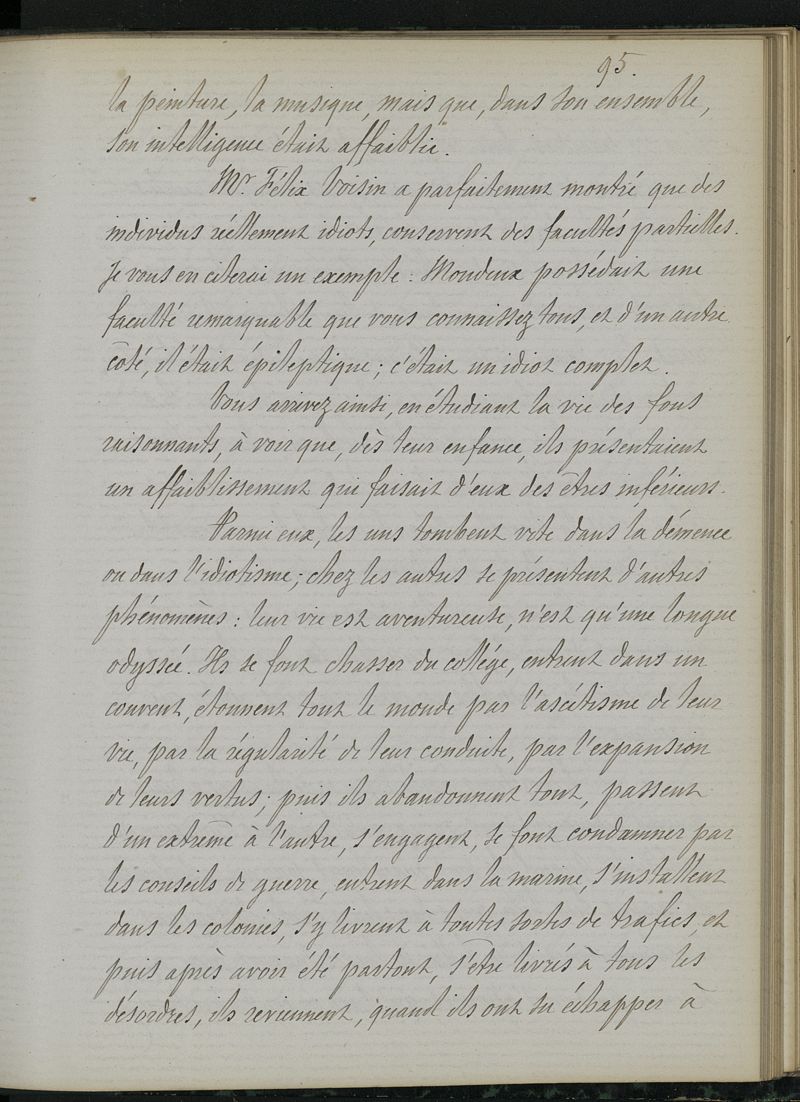 95.
la peinture, la musique, mais que, dans son ensemble,
son intelligence était affaiblie.
Mr. Félix Voisin a parfaitement montré que des
individus réellement idiots, conservent des facultés partielles.
Je vous en citerai un exemple : Mondeux possédait une
faculté remarquable que vous connaissez tous, et d'un autre
côté, il était épileptique ; c'était un idiot complet.
Vous arrivez ainsi, en étudiant la vie des fous
raisonnants, à voir que, dès leur enfance, ils présentaient
un affaiblissement qui faisait d'eux des êtres inférieurs.
Parmi eux, les uns tombent vite dans la démence
ou dans l'idiotisme ; chez les autres se présentent d'autres
phénomènes : leur vie est aventureuse, n'est qu'une longue
odyssée. Ils se font chasser du collége, entrent dans un
couvent, étonnent tout le monde par l'ascétisme de leur
vie, par la régularité de leur conduite, par l'expansion
de leurs vertus ; puis ils abandonnent tout, passent
d'un extrême à l'autre, s'engagent, se font condamner par
les conseils de guerre, entrent dans la marine, s'installent
dans les colonies, s'y livrent à toutes sortes de trafics, et
puis après avoir été partout, s'être livrés à tous les
désordres, ils reviennent, quand ils ont su échapper à